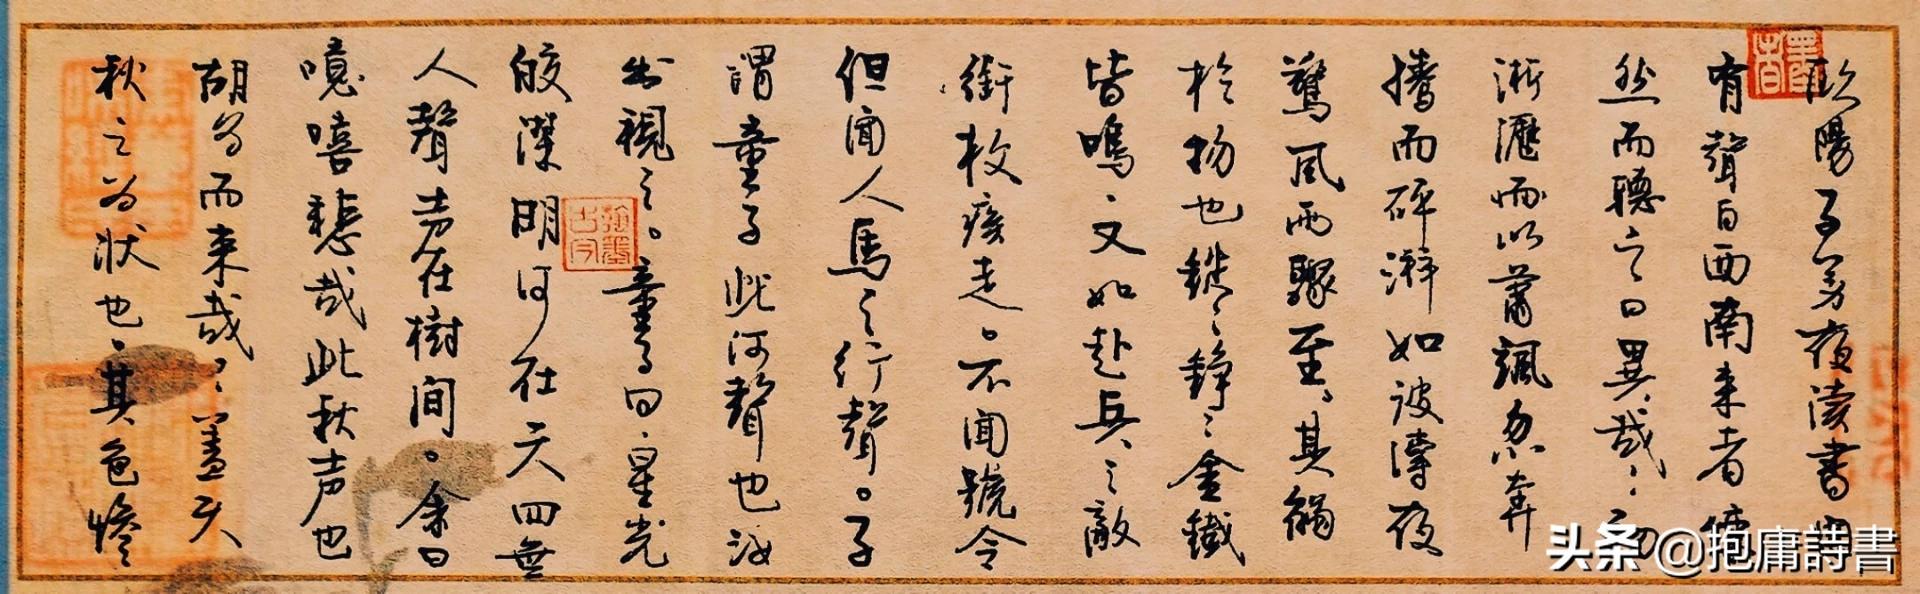 欧陽子方夜讀書聞
有聲自西南来者悚
然而聽之曰異哉々初
淅瀝而以蕭颯忽奔
騰而砰湃如波濤夜
驚風雨驟至其觸
於物也鏦々錚々金鐵
皆鳴又如赴兵之敵
銜枚疾走不聞號令
但闻人馬之行聲予
謂童子此何聲也汝
出視之童子曰星光
皎潔明河在天四無
人聲声在樹间余曰
噫嘻悲哉此秋声也
胡为而来哉々蓋夫
秋之为状也其色惨
头条@抱庸詩書